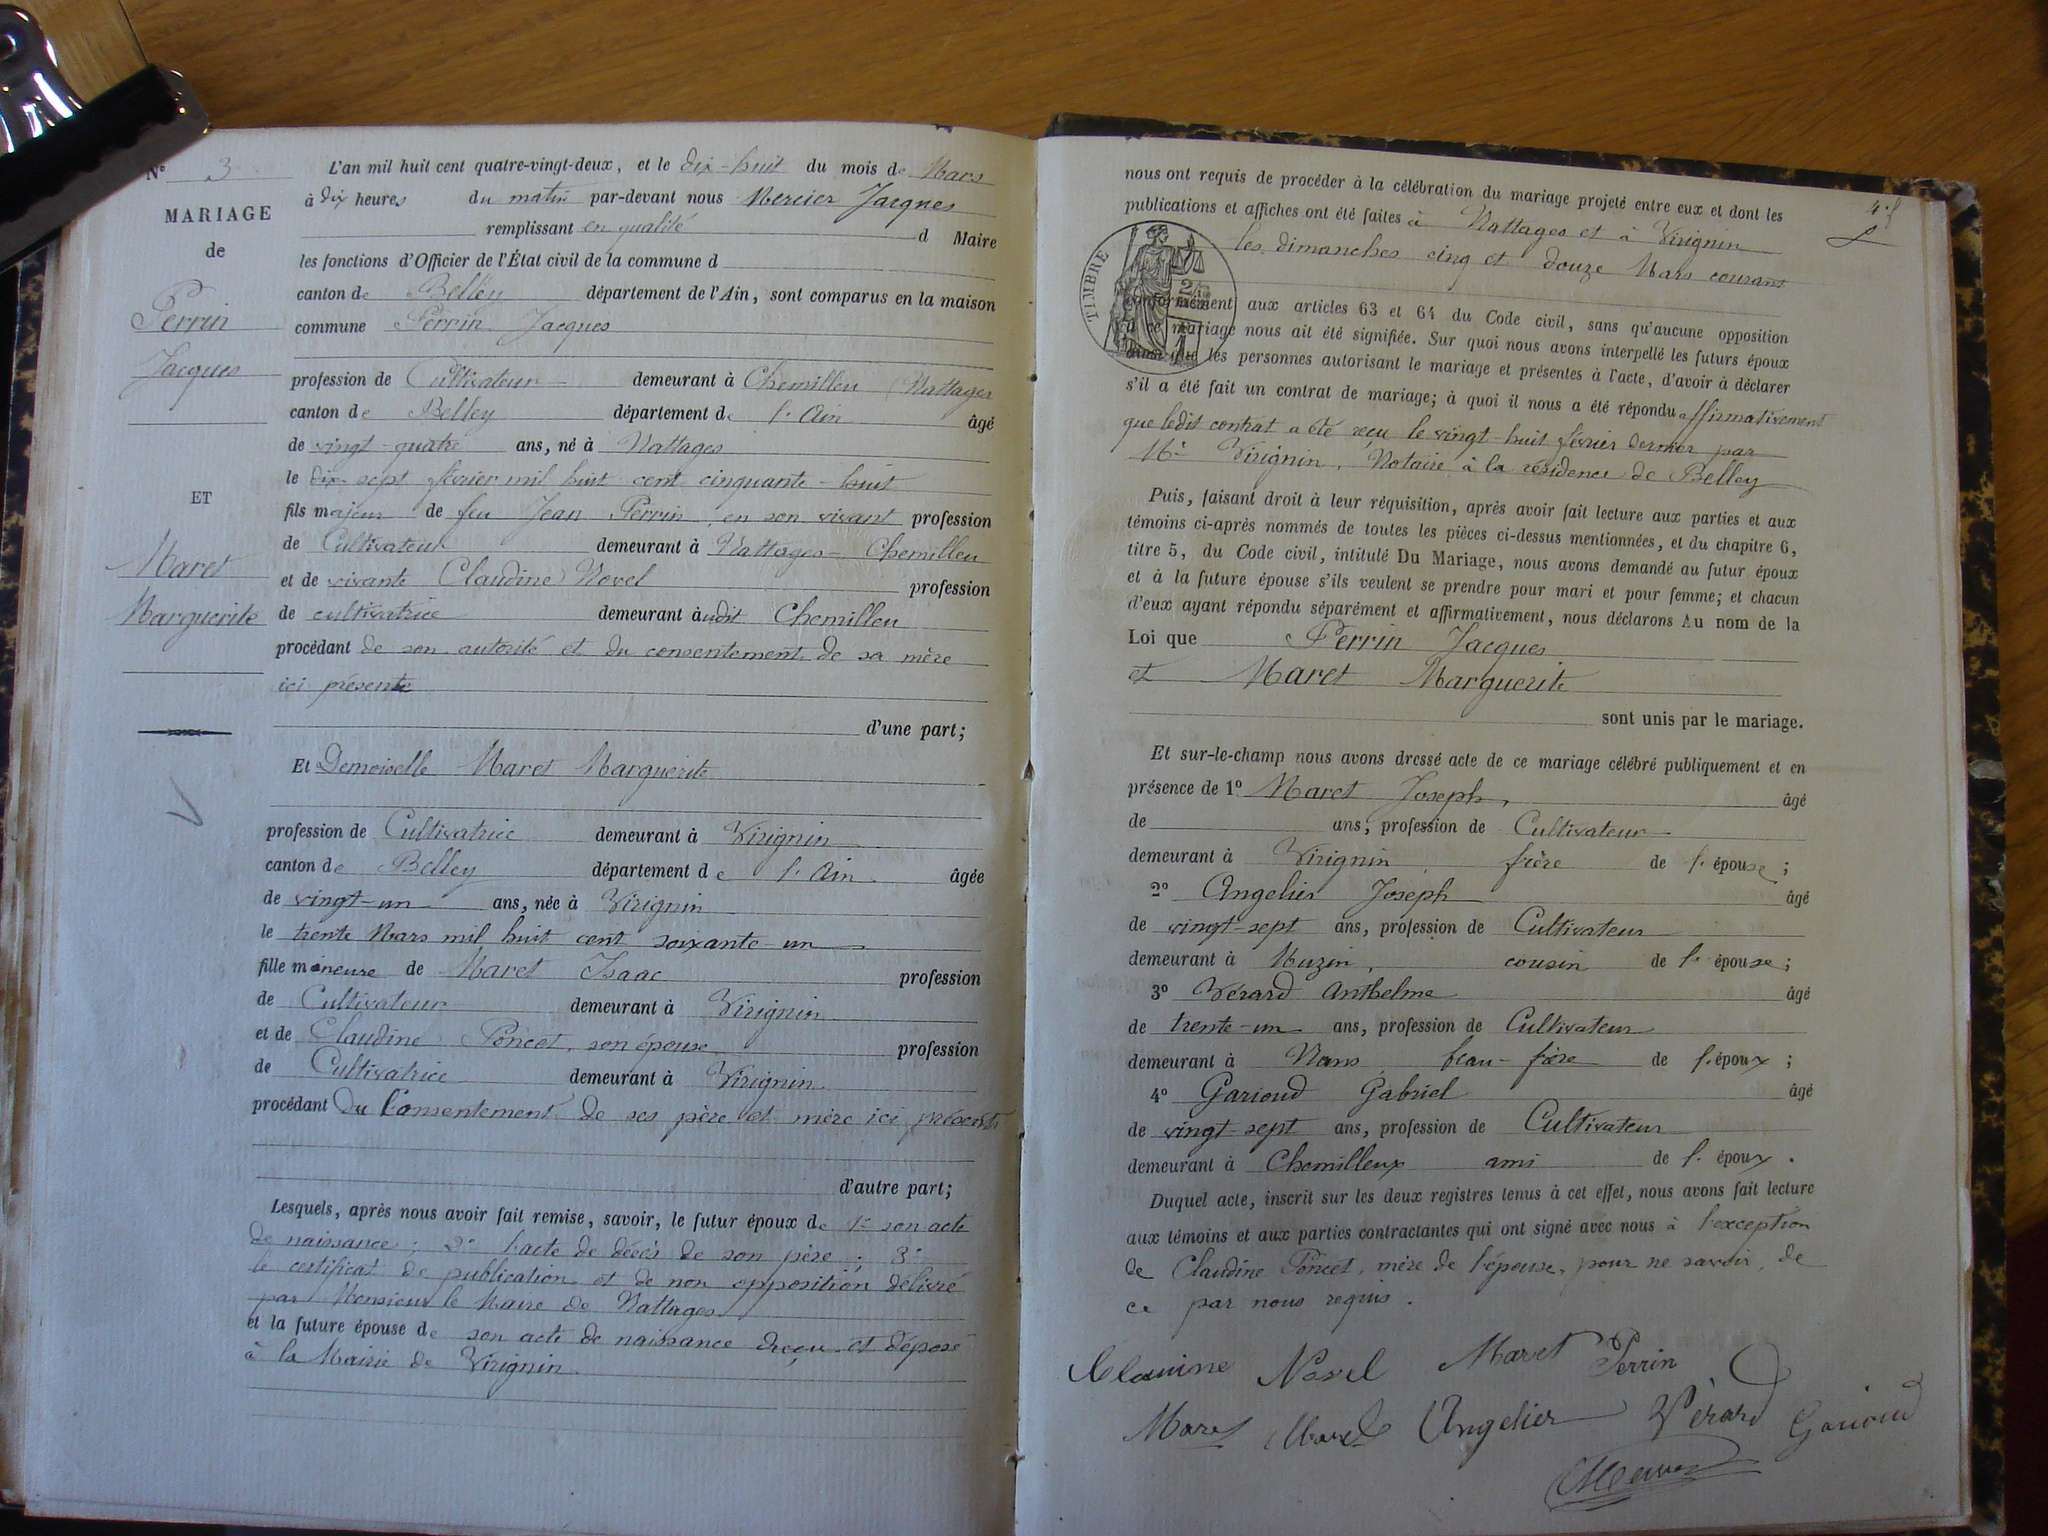 N° 3
MARIAGE
de
Perrin
Jacques
ET
Maret
Marguerite
L'an mil huit cent quatre-vingt-deux, et le dix-huit du mois de Mars
à dix heures du matin par-devant nous Mercier Jacques
remplissant en qualité d Maire
les fonctions d'Officier de l'État civil de la commune d
canton de Belley département de l'Ain, sont comparus en la maison
commune Perrin Jacques
profession de Cultivateur demeurant à Chemilleu (Nattages
canton de Belley département de l'Ain âgé
de vingt-quatre ans, né à Nattages
le dix-sept février mil huit cent cinquante-huit
fils majeur de feu Jean Perrin, en son vivant profession
de Cultivateur demeurant à Nattages-Chemilleu
et de vivante Claudine Novel profession
de cultivatrice demeurant àudit Chemilleu
procédant de son autorité et du consentement de sa mère
ici présente
d'une part;
Et Demoiselle Maret Marguerite
profession de Cultivatrice demeurant à Virignin
canton de Belley département de l'Ain âgée
de vingt-un ans, née à Virignin
le trente Mars mil huit cent soixante-un
fille mineure de Maret Isaac profession
de Cultivateur demeurant à Virignin
et de Claudine Poncet, son épouse profession
de Cultivatrice demeurant à Virignin
procédant du Consentement de ses père et mère ici présents
d'autre part;
Lesquels, après nous avoir fait remise, savoir, le futur époux de 1° son acte
de naissance; 2° l'acte de décès de son père; 3°
le certificat de publication et de non opposition délivré
par Monsieur le Maire de Nattages
et la future épouse de son acte de naissance reçu et déposé
à la Mairie de Virignin
nous ont requis de procéder à la célébration du mariage projeté entre eux et dont les
publications et affiches ont été faites à Nattages et à Virignin
les dimanches cinq et douze Mars courant
TIMBRE
conformément aux articles 63 et 64 du Code civil, sans qu'aucune opposition
à ce mariage nous ait été signifiée. Sur quoi nous avons interpellé les futurs époux
ainsi que les personnes autorisant le mariage et présentes à l'acte, d'avoir à déclarer
s'il a été fait un contrat de mariage; à quoi il nous a été répondu affirmativement
que ledit contrat a été reçu le vingt-huit février dernier par
Me Virignin, Notaire à la résidence de Belley
Puis, faisant droit à leur réquisition, après avoir fait lecture aux parties et aux
témoins ci-après nommés de toutes les pièces ci-dessus mentionnées, et du chapitre 6,
titre 5, du Code civil, intitulé Du Mariage, nous avons demandé au futur époux
et à la future épouse s'ils veulent se prendre pour mari et pour femme; et chacun
d'eux ayant répondu séparément et affirmativement, nous déclarons Au nom de la
Loi que Perrin Jacques
et Maret Marguerite
sont unis par le mariage.
Et sur-le-champ nous avons dressé acte de ce mariage célébré publiquement et en
présence de 1° Maret Joseph, âgé
de ans, profession de Cultivateur
demeurant à Virignin frère de l'épouse;
2° Angelier Joseph âgé
de vingt-sept ans, profession de Cultivateur
demeurant à Muzin, cousin de l'épouse;
3° Vérard Anthelme âgé
de trente-un ans, profession de Cultivateur
demeurant à Nans beau-frère de l'époux;
4° Garioud Gabriel âgé
de vingt-sept ans, profession de Cultivateur
demeurant à Chemilleux ami de l'époux.
Duquel acte, inscrit sur les deux registres tenus à cet effet, nous avons fait lecture
aux témoins et aux parties contractantes qui ont signé avec nous à l'exception
de Claudine Poncet, mère de l'épouse, pour ne savoir, de
ce par nous requis.
Novel Maret Perrin
Maret Maret Angelier Vérard Garioud
Mercier